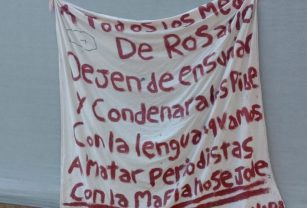 A Todos los Med
De Rosario
Dejen de ensuciar
y Condenar a los Pibe
Con la lengua o vamos
A matar periodistas
Con la Mafia no se Jode